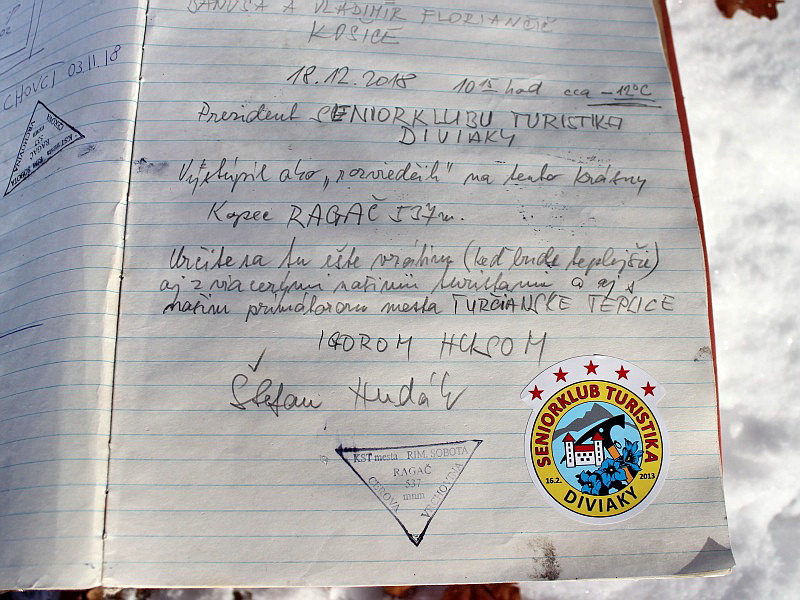 DANUŠA A VLADIMÍR FLORIANČIČ
KOŠICE
CHOVCI 03.11.18
18.12.2018 10 15 hod cca -12°C
Prezident SENIORKLUBU TURISTIKA
DIVIAKY
Vystúpil ako „rozvedčík" na tento krásny
Kopec RAGAČ 537 m.
Určite sa tu ešte vrátim (keď bude teplejšie)
aj z viacerými našimi turistami a aj s
našim primátorom mesta TURČIANSKE TEPLICE
IGOROM HUSOM
Štefan Hudák
KST mesta RIM. SOBOTA
RAGAČ
537
mnm
CEROVÁ VRCHOVINA
SENIORKLUB TURISTIKA
16.2. 2013
DIVIAKY